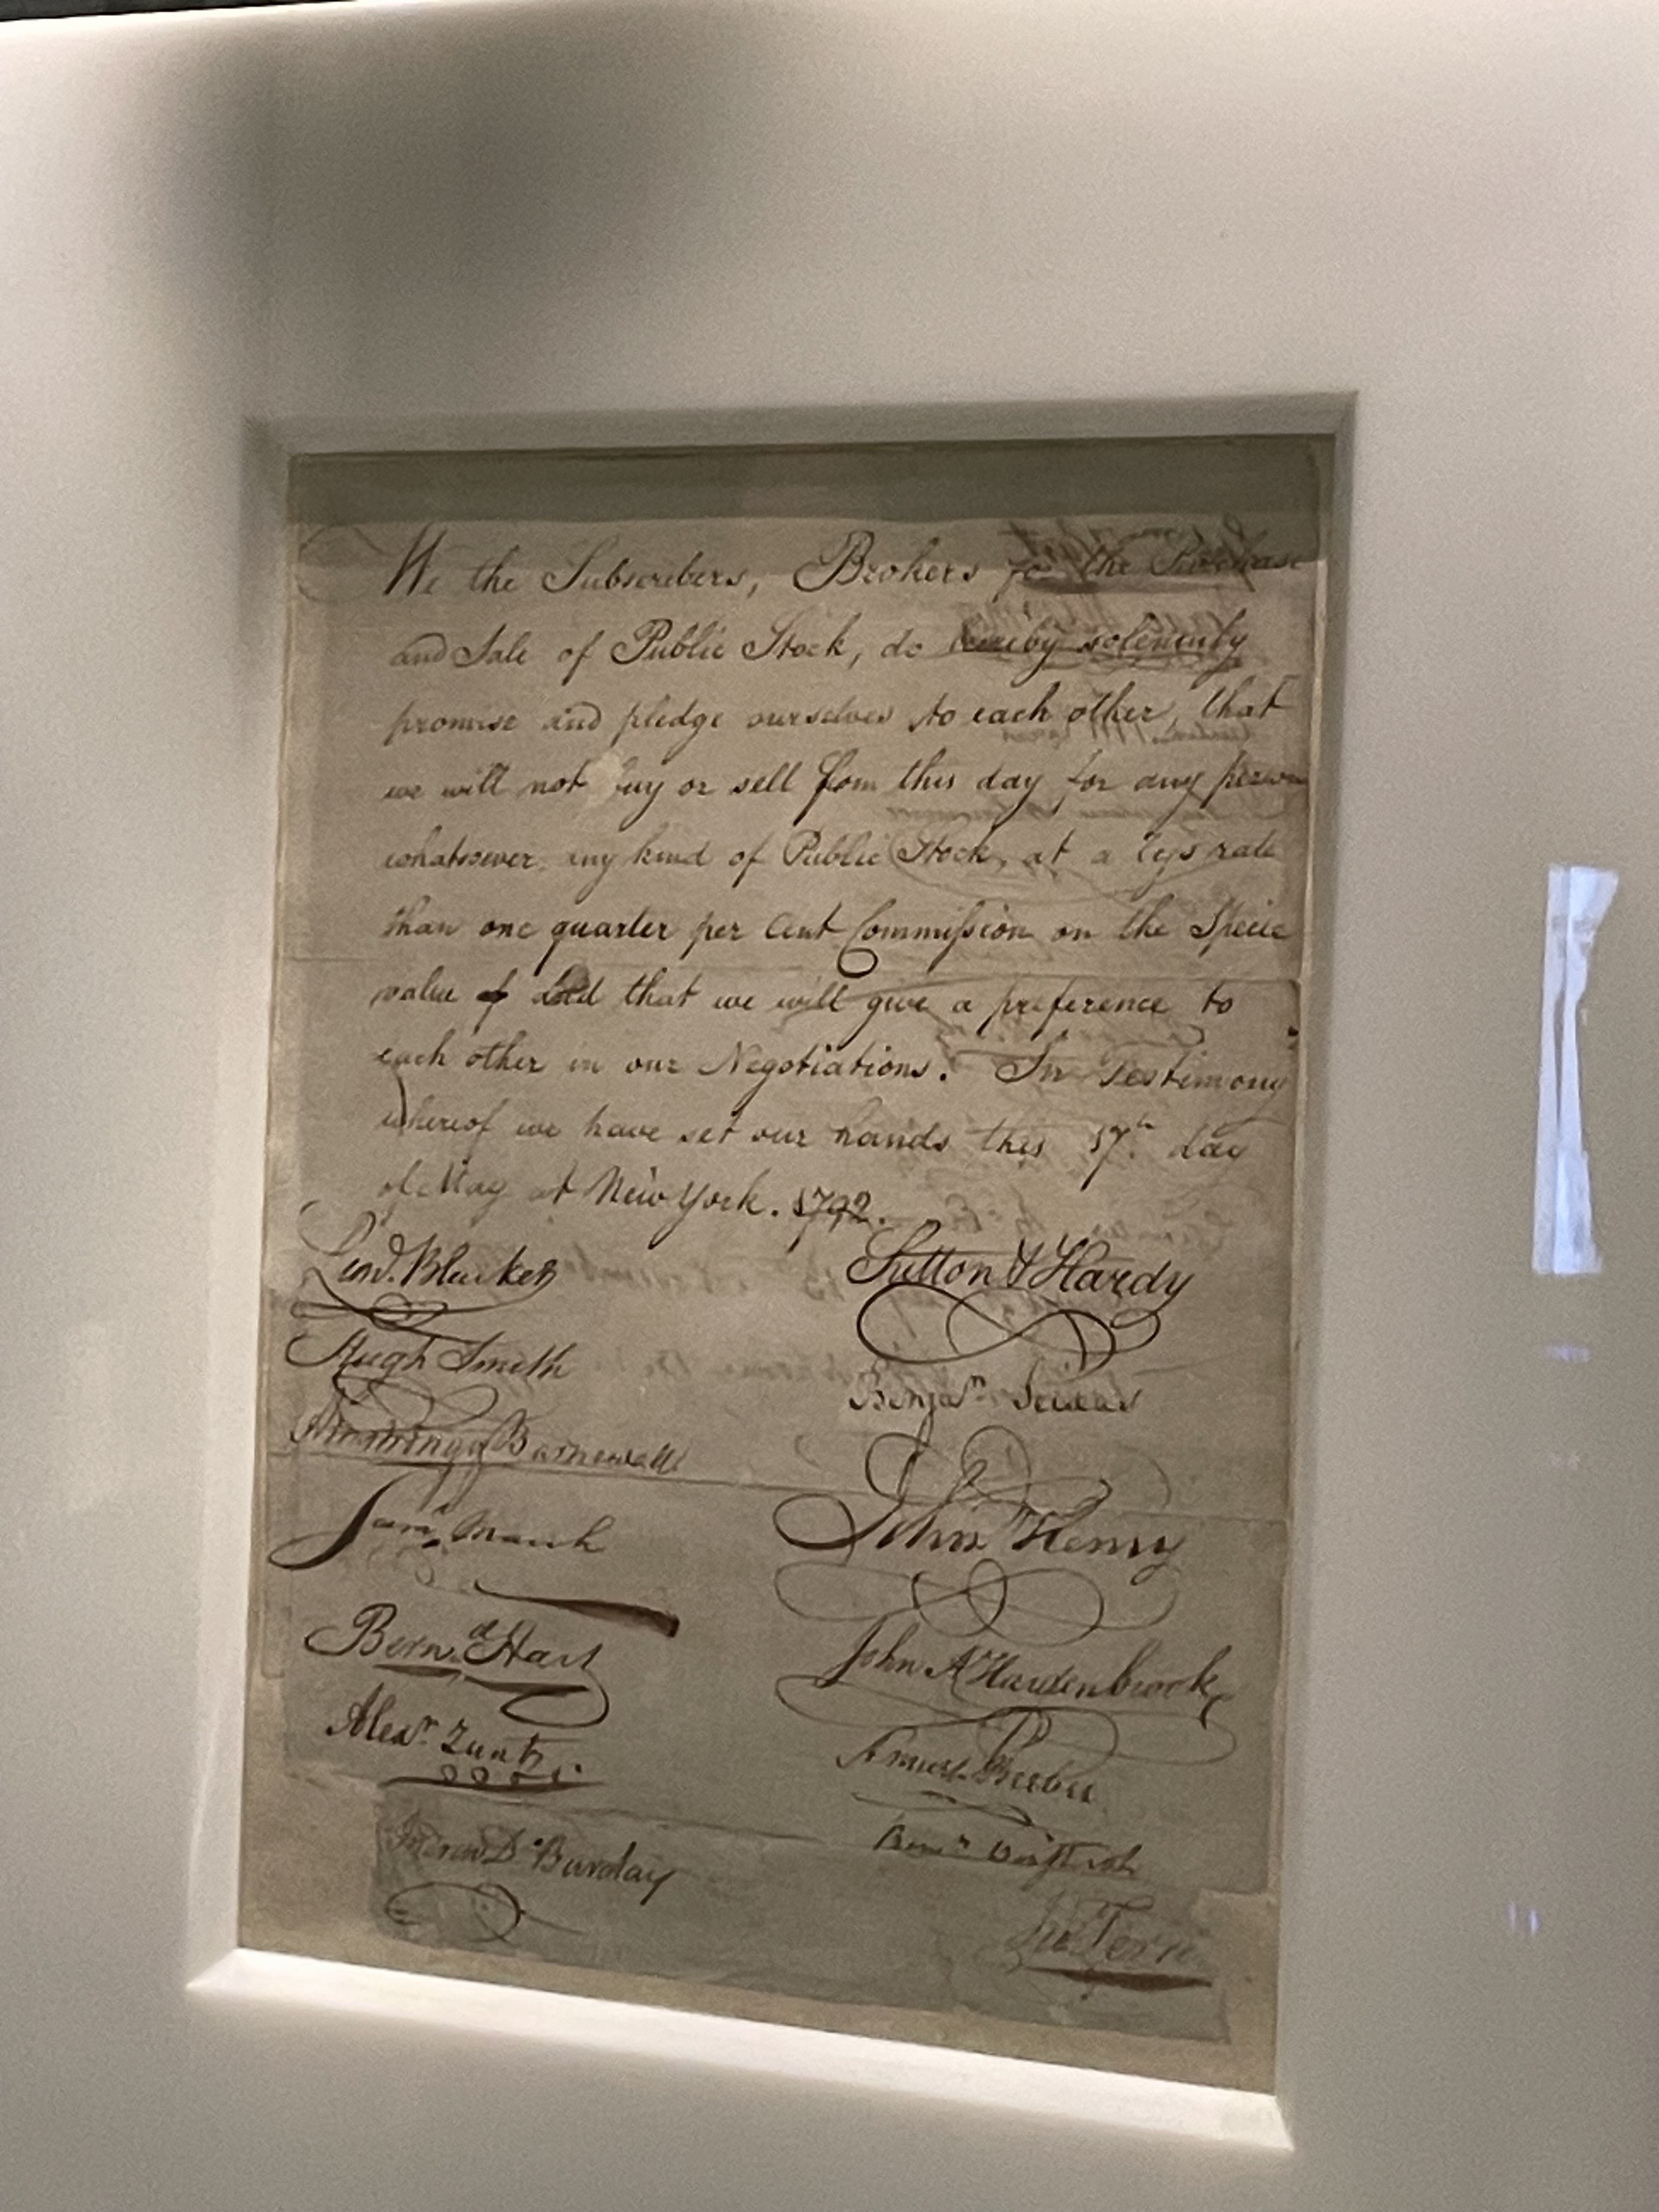 We the Subscribers, Brokers for the Purchase
and Sale of Public Stock, do hereby solemnly
promise and pledge ourselves to each other, that
we will not buy or sell from this day for any person
whatsoever, any kind of Public Stock, at a less rate
than one quarter per Cent Commission on the Specie
value of and that we will give a preference to
each other in our Negotiations. In Testimony
whereof we have set our hands this 17th day
of May at New York. 1792.
Leod. Bleecker
Sutton & Hardy
Hugh Smith
Benjamn Seixas
Armstrong & Barnewall
John Henry
Saml March
Bernd Hart
John A Hardenbrook
Alexr Zuntz
Amust Beebee
Andrew D. Barclay